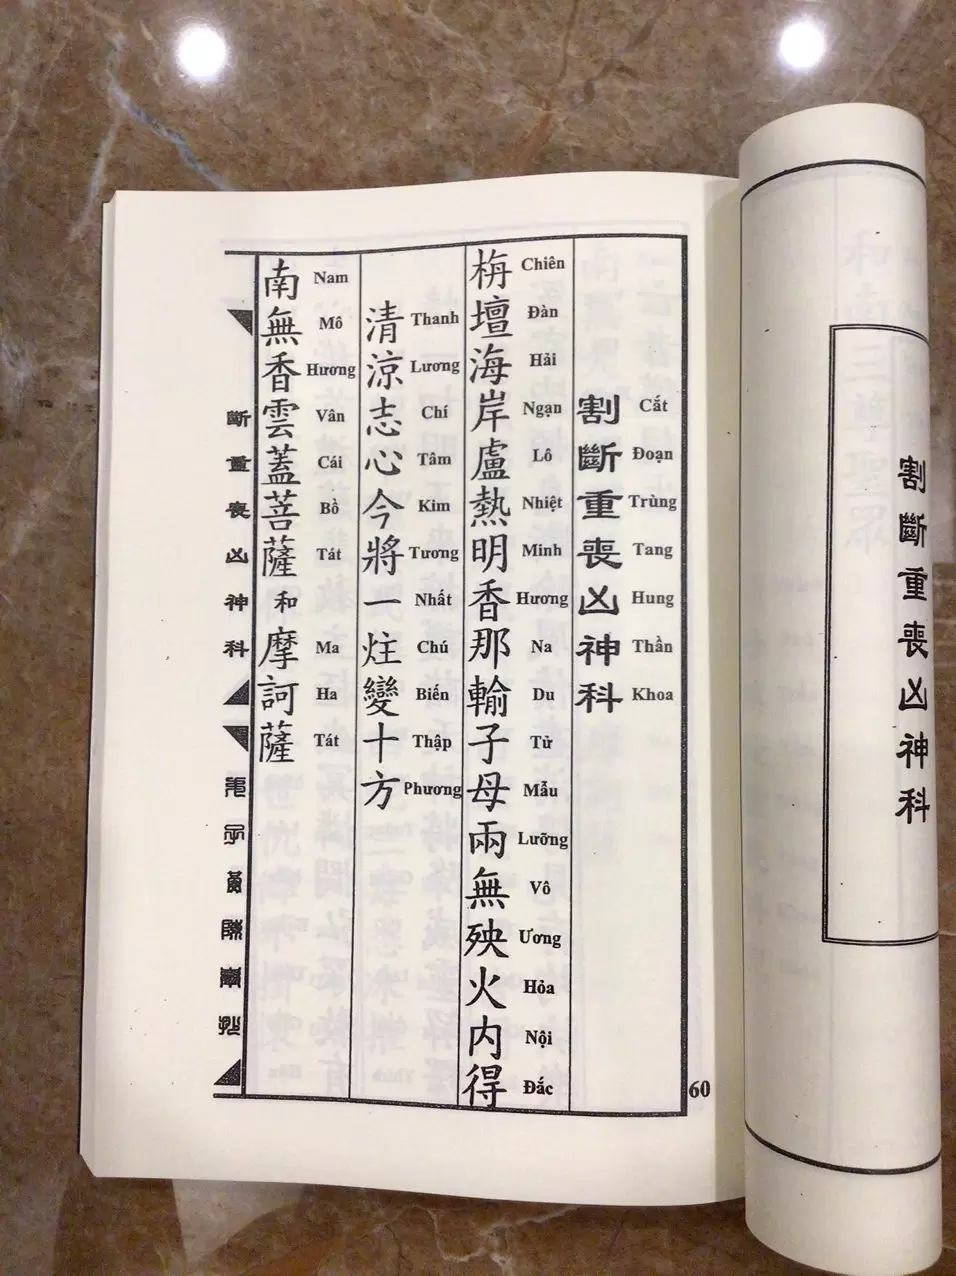 割斷重喪凶神科
割斷重喪凶神科
Cắt Đoạn Trùng Tang Hung Thần Khoa
栴壇海岸盧熱明香那輸子母兩無殃火内得
Chiên Đàn Hải Ngạn Lô Nhiệt Minh Hương Na Du Tử Mẫu Lưỡng Vô Ương Hỏa Nội Đắc
清涼志心今將一炷變十方
Thanh Lương Chí Tâm Kim Tương Nhất Chú Biến Thập Phương
南無香雲蓋菩薩和摩訶薩
Nam Mô Hương Vân Cái Bồ Tát Ma Ha Tát
斷重喪凶神科
60